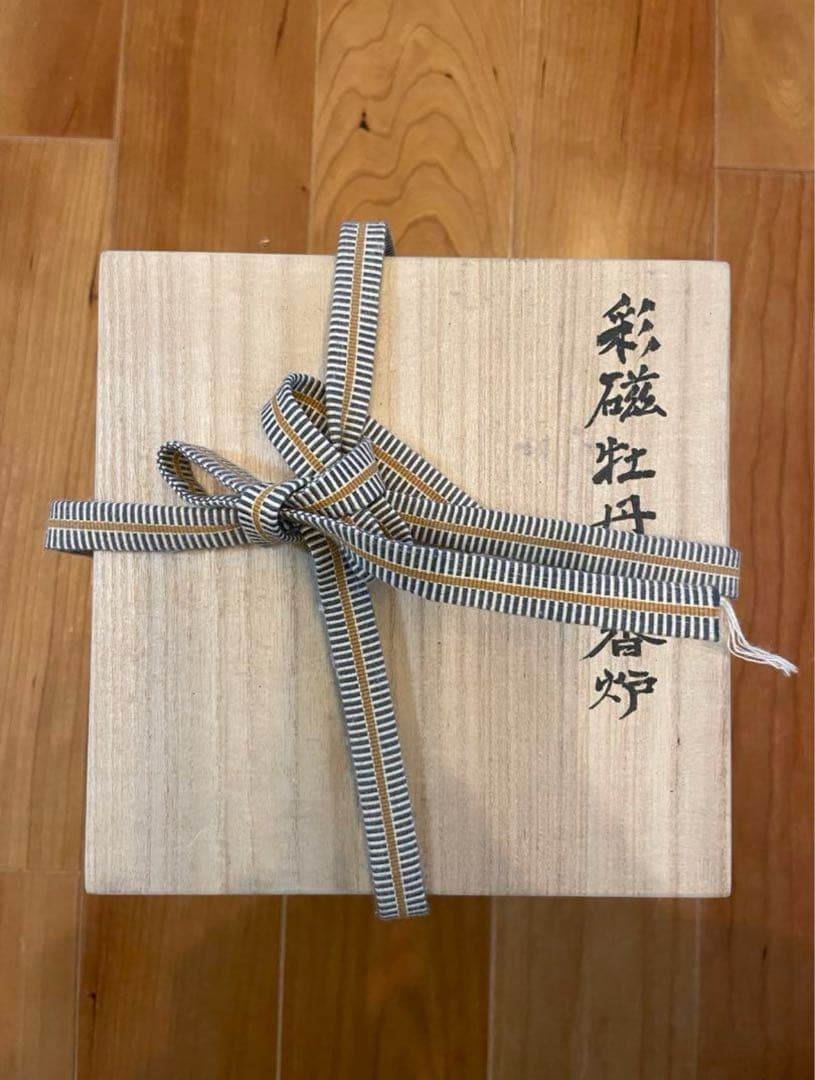 彩磁牡丹香炉